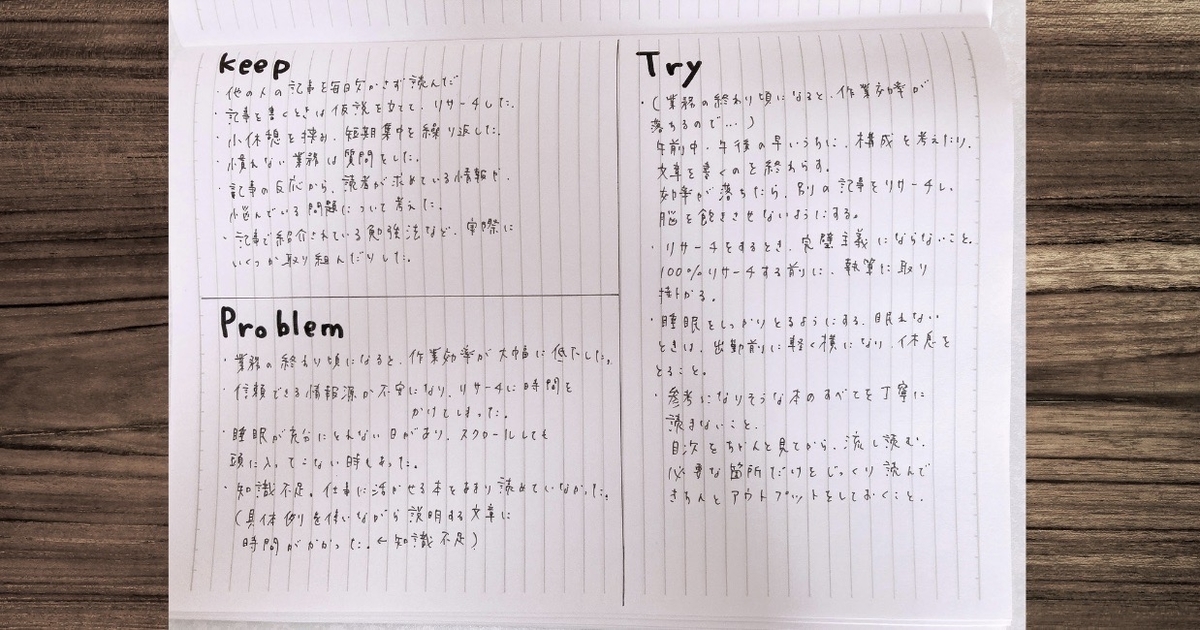 Keep
・他の人の記事を毎日欠かさず読んだ
・記事を書くときは仮説を立てて、リサーチした。
・小休憩を挟み、短期集中を繰り返した。
・慣れない業務は質問をした。
・記事の反応から、読者が求めている情報や、
悩んでいる問題について考えた。
・記事で紹介されている勉強法など、実際に
いくつか取り組んだりした。
Problem
・業務の終わり頃になると、作業効率が大幅に低下した。
・信頼できる情報源か不安になり、リサーチに時間を
かけてしまった。
・睡眠が充分にとれない日があり、スクロールしても
頭に入ってこない時もあった。
・知識不足。仕事に活かせる本をあまり読めていなかった。
(具体例を使いながら説明する文章に
時間がかかった。←知識不足)
Try
・(業務の終わり頃になると、作業効率が
落ちるので…)
午前中、午後の早いうちに、構成を考えたり、
文章を書くのを終わらす。
効率が落ちたら、別の記事をリサーチし、
脳を飽きさせないようにする。
・リサーチをするとき、完璧主義にならないこと。
100%リサーチする前に、執筆に取り
掛かる。
・睡眠をしっかりとるようにする。眠れない
ときは、出勤前に軽く横になり、休息を
とること。
・参考になりそうな本のすべてを丁寧に
読まないこと。
目次をちゃんと見てから、流し読む。
必要な箇所だけをじっくり読んで
きちんとアウトプットをしておくこと。